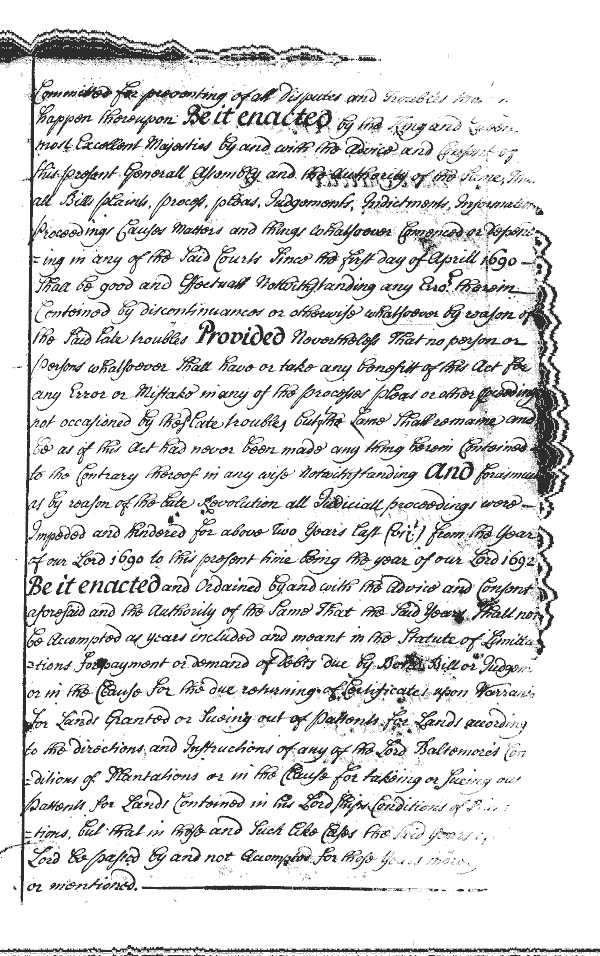 Committed for preventing of all Disputes and Troubles that
happen thereupon Be it enacted by the King and Queens
most Excellent Majesties by and with the Advice and Consent of
this present Generall Assembly and the Authority of the Same, That
all Bills plaints, process, pleas, Judgements, Indictments, Informations
Proceedings Causes Matters and things whatsoever Comenced or Depend
=ing in any of the Said Courts Since the first day of Aprill 1690
Shall be good and Effectuall Notwithstanding any Erro.r therein
Conteined by discontinuances or otherwise whatsoever by reason of
the Said late troubles Provided Nevertheless That no person or
Persons whatsoever Shall have or take any benefitt of this Act for
any Error or Mistake in any of the Processes pleas or other proceeding
not occasioned by the late troubles but the Same Shall remaine and
be as if this Act had never been made any thing herein Conteined
to the Contrary thereof in any wise Notwithstanding And forasmuch
as by reason of the late Revolution all Judiciall proceedings were
Impeded and hindered for above Two Years last (viz.t) from the Year
of our Lord 1690 to this present time being the year of our Lord 1692
Be it enacted and Ordained by and with the Advice and Consent
aforesaid and the Authority of the Same That the Said Years Shall not
be Accompted as years included and meant in the Statute of Limitta
=tions for payment or demand of Debts due by Bond Bill or Judgem
or in the Clause for the due returning of Certificates upon Warrants
for Lands Granted or Sueing out of Pattents for Lands according
to the directions, and Instructions of any of the Lord Baltemores Con
=ditions of Plantations or in the Clause for takeing or Sueing out
Pattents for Lands Conteined in his Lordships Conditions of Planta
=tions, but that in those and Such like Cases the Said Years
be passed by and not Accompted for those Years
or mentioned.